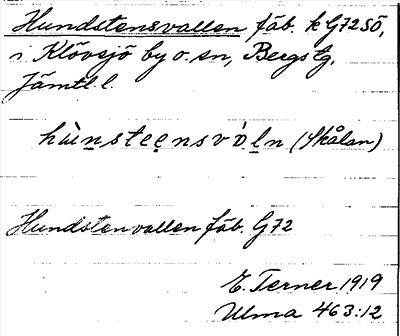 Hundstensvallen fäb. k G72SÖ,
i Klövsjö by o. sn, Bergs tg,
Jämtl. l.
hùnsteensvòln (Skålan)
Hundstenvallen fäb. G72
E. Terner 1919
Ulma 463:12